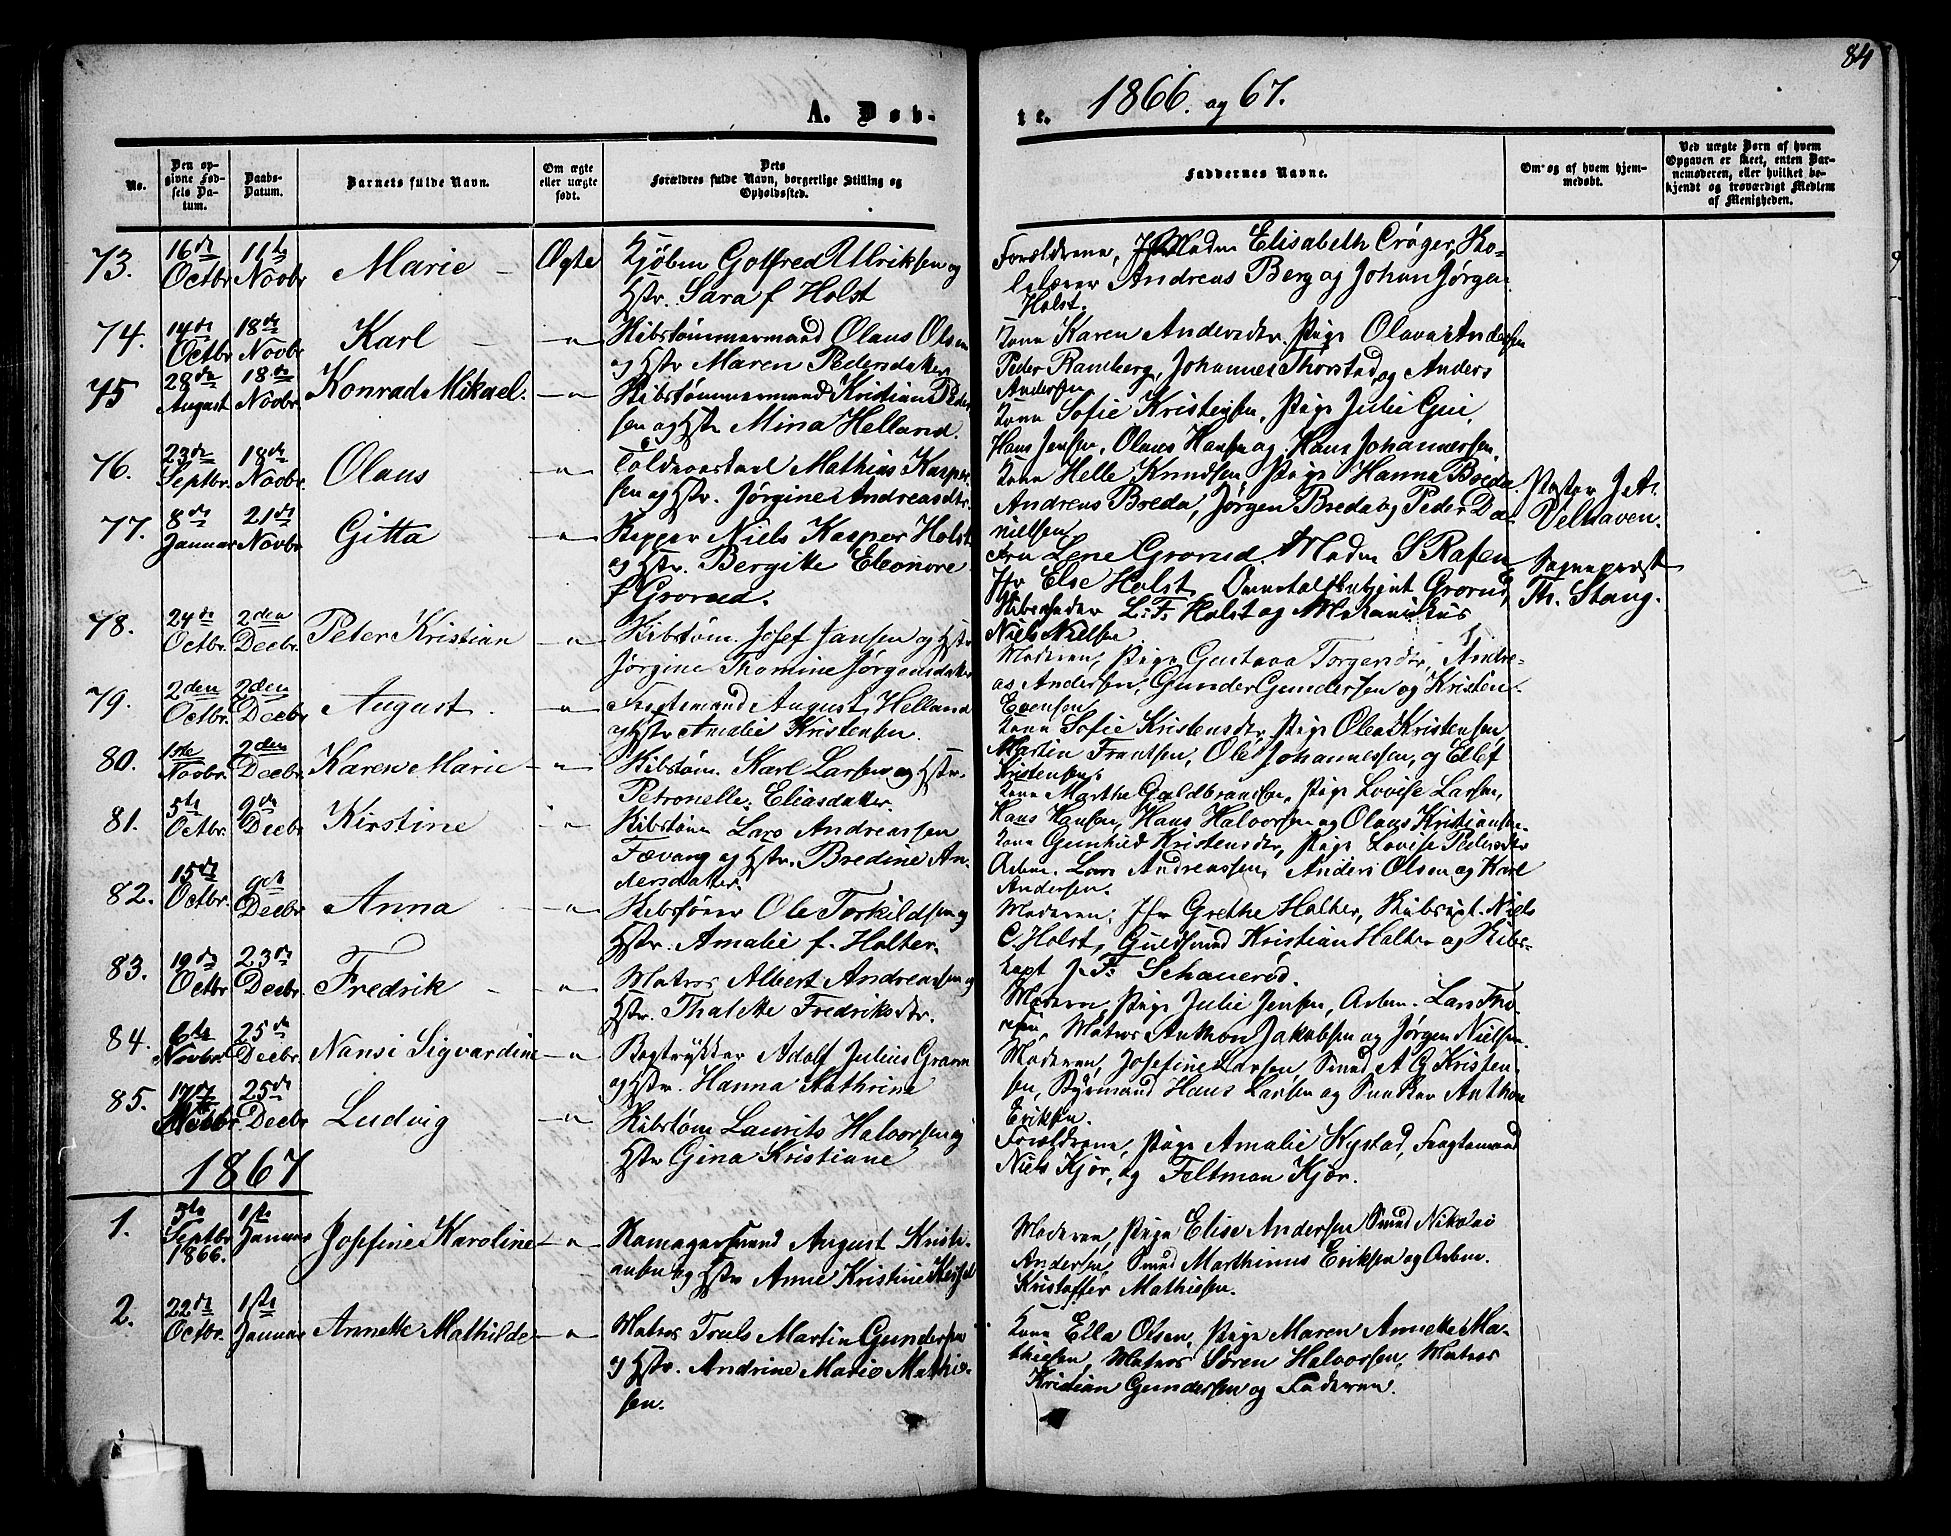 84
A. Døb-
te. 1866. og 67.
No.
Den opgivne Fødsels Datum.
Daabs-Datum.
Barnets fulde Navn.
Om ægte eller uægte født.
Dets Forældres fulde Navn, borgerlige Stilling og Opholdssted.
Faddernes Navne.
Om og af hvem hjemmedøbt.
Ved uægte Børn af hvem Opgaven er skeet, enten Barnemoderen, eller hvilket bekjendt og troværdigt Medlem af Menigheden.
73. 16de Octbr 11te Novbr Marie – Ægte Kjøbm Gotfred Ulriksen og
Hstr. Sara f Holst
Forældrene, Madm Elisabeth Crøger,
Andreas Berg og Johan Jørgen
Holst.
74. 14de Octbr 18de Novbr Karl – " – Skibstømmermand Olaus Olsen
og Hstr Maren Pedersdatter
Kone Karen Andersdtr. Pige Olava Andersen
Peder Ramberg, Johannes Thorstad, og Anders
Andersen
75 28de August 18de Novbr. Konrad Mikael. – " Skibstømmermand Kristian Peder
sen og Hstr Mina Helland.
Kone Sofie Kristensen, Pige Julie Gui,
Hans Jensen, Olaus Hansen og Hans Johannessen.
76. 23de Septbr. 18de Novbr Olaus – " – Toldvæstael Mathias Kasper
sen og Hstr. Jørgine Andreasdtr.
Kone Helle Knudsen, Pige Hanna Breda.
Andreas Breda, Jørgen Breda og Peder Da-
nielsen.
Pastor J. A.
Velhaven.
77. 8de Januar 21de Novbr Gitta – " – Skipper Niels Kasper Holst
og Hstr. Bergitte Eleonore
f Grorud.
Fru Lene Grorud. Madm S Rafen
Jfr Else Holst, Grorud,
L. F. Holst og Mekanikus
Niels Nielsen
Sogneprest
Th. Stang.
78. 24de Octbr. 2den Decbr. Peter Kristian – " – Skibstøm. Josef Jansen og Hstr
Jørgine Thomine Jørgensdatter
Moderen, Pige Gustava Torgersdtr, Andre-
as Andersen, Gunder Gundersen og Kristen
Evensen
79. 2den Octbr. 2den Decbr August. – " – Fragtemand August Helland
og Hstr Amalie Kristensen.
Kone Sofie Kristensdtr, Pige Olea Kristensen,
Martin Frantsen, Ole Johannessen, og Ellef
Kristensen.
80. 1ste Novbr. 2den Decbr. Karen Marie – " – Skibstøm. Karl Larsen og Hstr.
Petronelle Eliasdatter.
Kone Marthe Guldbrandsen, Pige Lovise Larsen,
Hans Hansen, Hans Halvorsen og Olaus Kristiansen.
81. 5te Octbr. 9de Decbr Kirstine – " – Skibstøm Lars Andreassen
Fævang og Hstr. Bredine An-
dersdatter.
Kone Gunhild Kristensdtr, Pige Lovise Pedersdtr
Arbm. Lars Andreassen, Anders Olsen og Karl
Andersen.
82. 15de Octbr. 9de Decbr Anna – " – Skibsfører Ole Torkildsen og
Hstr. Amalie f. Holter.
Moderen, Jfr Grethe Holter, Skibscapt. Niels
C. Holst, Guldsmed Kristian Holter og Skibs-
kapt J. F. Schauerød.
83. 19de Octbr 23de Decbr. Fredrik – " – Matros Albert Andreassen og
Hstr. Thalette Fredriksdtr.
Moderen, Pige Julie Jensen, Arbm. Lars Tho-
resen, Matros Anthon Jakobsen og Jørgen Nielsen.
84. 6te Novbr 25de Decbr. Nansi Sigvardine – " – Bogtrykker Adolf Julius Gram
og Hstr. Hanna Kathrine
Moderen, Josefine Larsen, Smed A G Kristen-
sen, Styrmand Hans Larsen og Snekker Anthon
Eriksen.
85. 17de Novbr. 25de Decbr Ludvig – " Skibstøm Laurits Halvorsen og
Hstr Gina Kristiane
Forældrene, Pige Amalie Nystad, Fragtemand
Niels Kjør, og Feltman Kjør.
1867
1. 5te Septbr 1866. 1ste Januar Josefine Karoline – " – August Kristi-
ansen og Hstr Anne Kristine
Moderen, Pige Elise Andersen Smed Nikolai
Andersen, Smed Marthinus Eriksen og Arbm.
Kristoffer Mathiesen.
2. 22de Octbr. 1ste Januar Annette Mathilde – " – Matros Truls Martin Gundersen
og Hstr. Andrine Marie Mathie-
sen.
Kone Ella Olsen, Pige Maren Annette Ma-
thiesen, Matros Søren Halvorsen, Matros
Kristian Gundersen og Faderen.